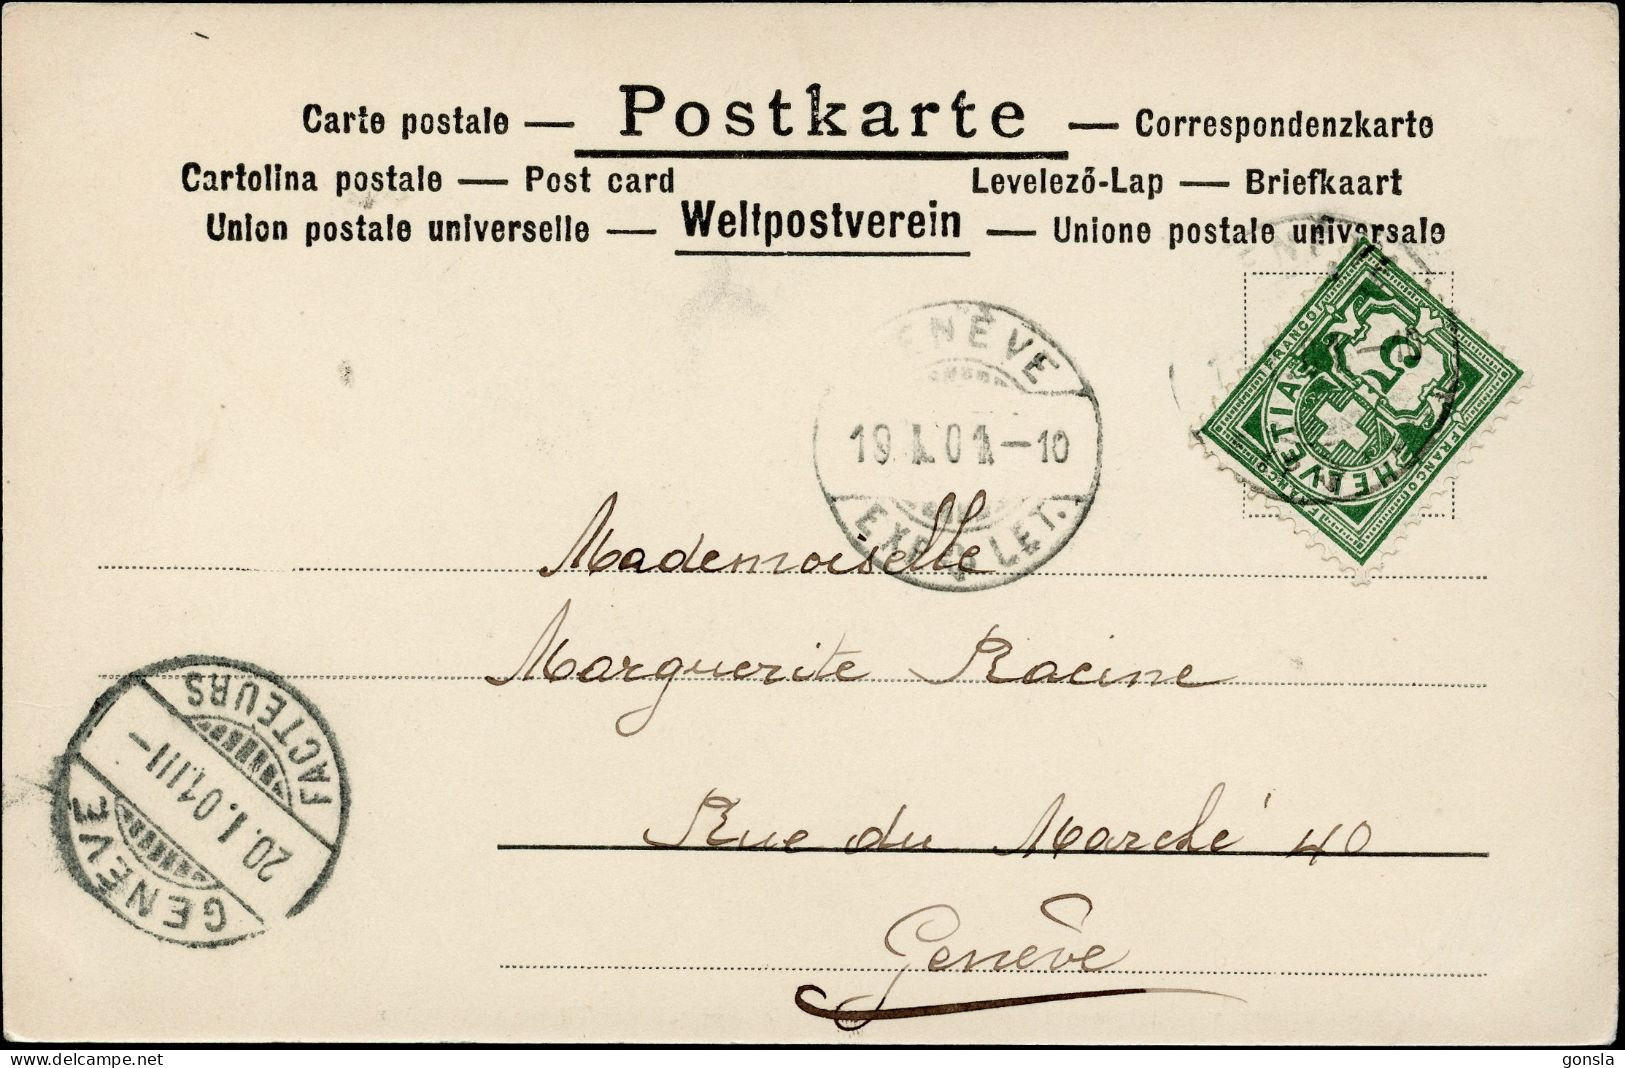 Carte postale — Postkarte — Correspondenzkarte
Cartolina postale — Post card Levelező-Lap — Briefkaart
Union postale universelle — Weltpostverein — Unione postale universale
GENÈVE
19.I.01-10
EXP. LET.
FRANCO FRANCO FRANCO
HELVETIA
5
Mademoiselle
Marguerite Racine
Rue du Marché 40
Genève
FACTEURS
20.I.01.III-
GENÈVE
gonsla